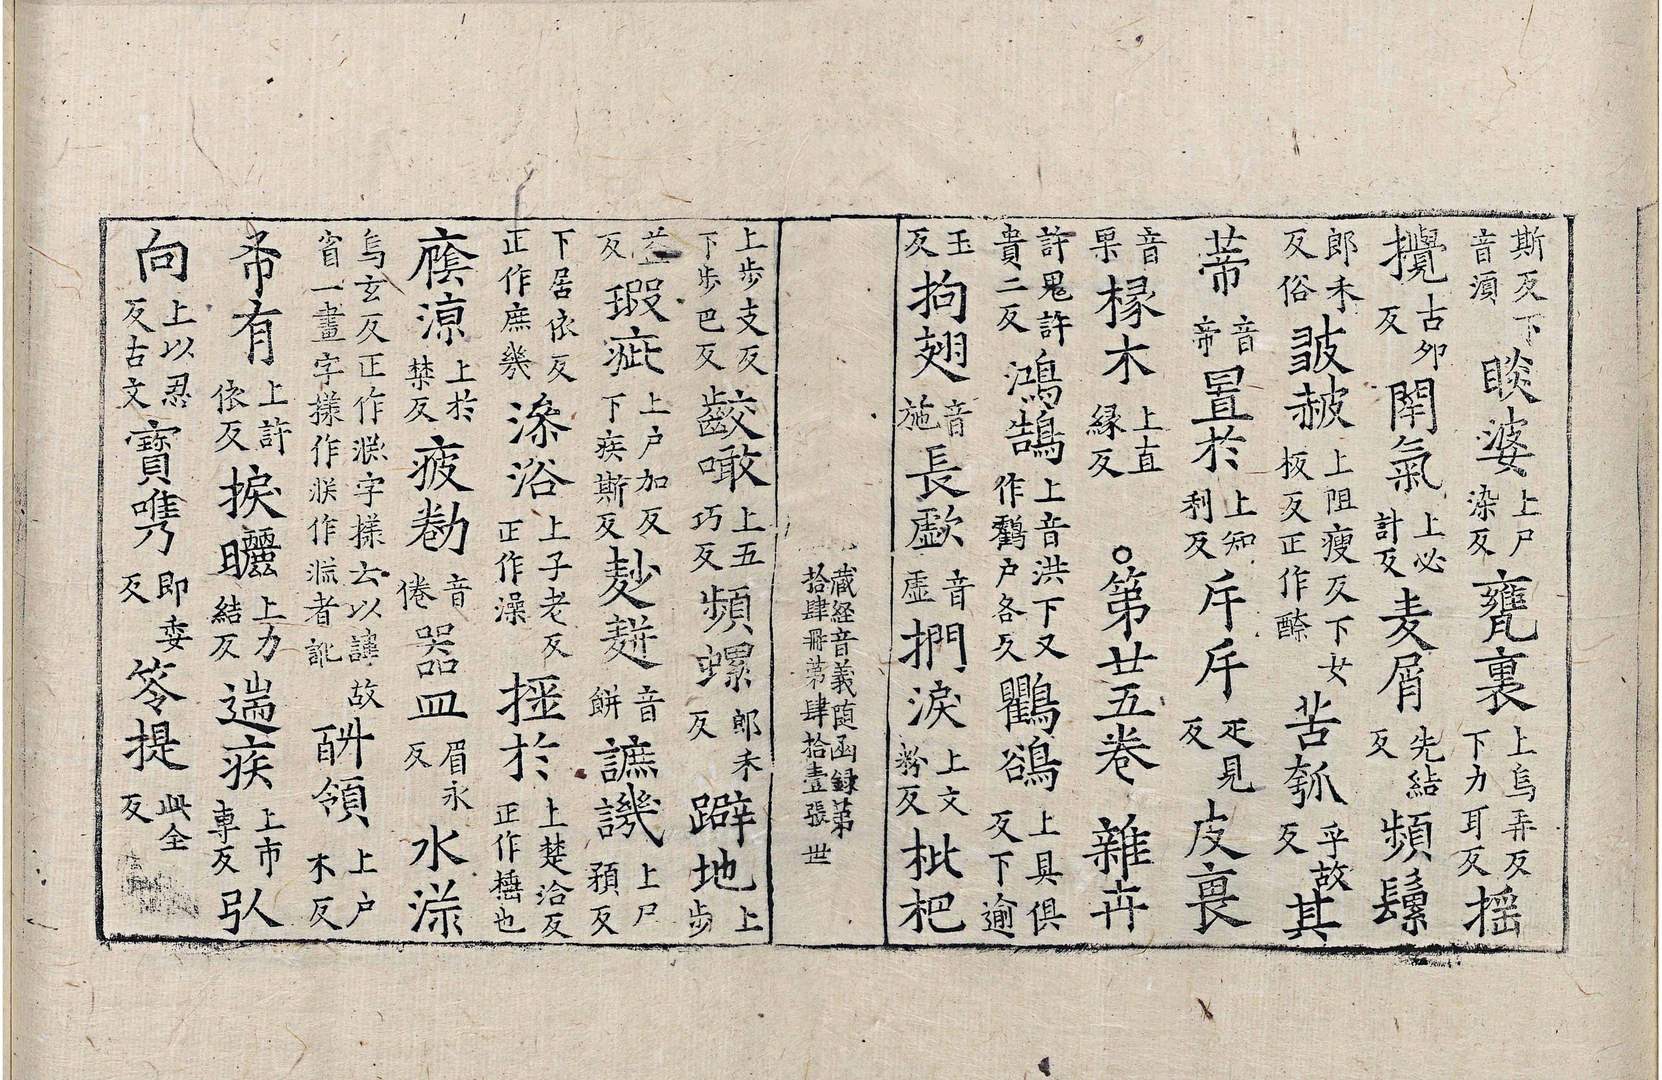 斯反下音湏睒婆上尸染反甕裏上烏弄反下力耳反揺
攪古夘反閇氣上必計反麦屑先結反頻䰐
郎禾反俗皷赧上阻瘦反下女板反正作㾭苦瓠乎故反其
蒂音帝置於上知利反斤斤疋見反皮裹
音果椽木上直縁反○第廿五卷 雜卉
許鬼許貴二反鴻鵠上音洪下又作鸖户各反鸜鵒上具俱反下逾
玉反拘翅音施長歔音虚捫淚上文粉反枇杷
藏経音義随函録第拾肆冊第肆拾壹張 世
上歩支反下歩巴反齩噉上五巧反頻螺郎禾反躃地上歩
益反瑕疵上户加反下疾斯反麨䴵音餅謶譏上尸預反
下居依反正作庶幾㴥浴上子老反正作澡揰於上楚洽反正作揷也
䕃凉上於禁反疲勌音倦器皿眉永反水㴃
烏玄反正作㴊字㨾云以諱故省一畫字㨾作㳄作㳅者訛𨠑領上户木反
帝有上許依反捩曬上力結反遄疾上市専反弘
向上以忍反古文寳㗱即委反筌提此全反